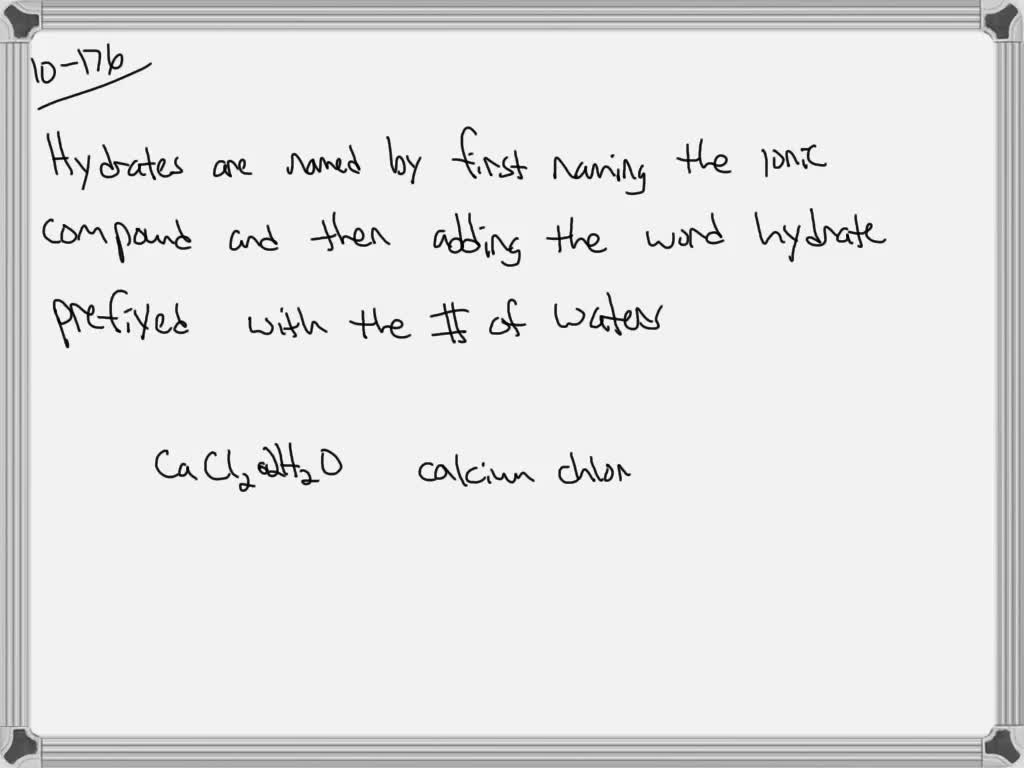 10-176
Hydrates are named by first naming the ionic
compound and then adding the word hydrate
prefixed with the # of waters
CaCl₂•2H₂O calcium chlor